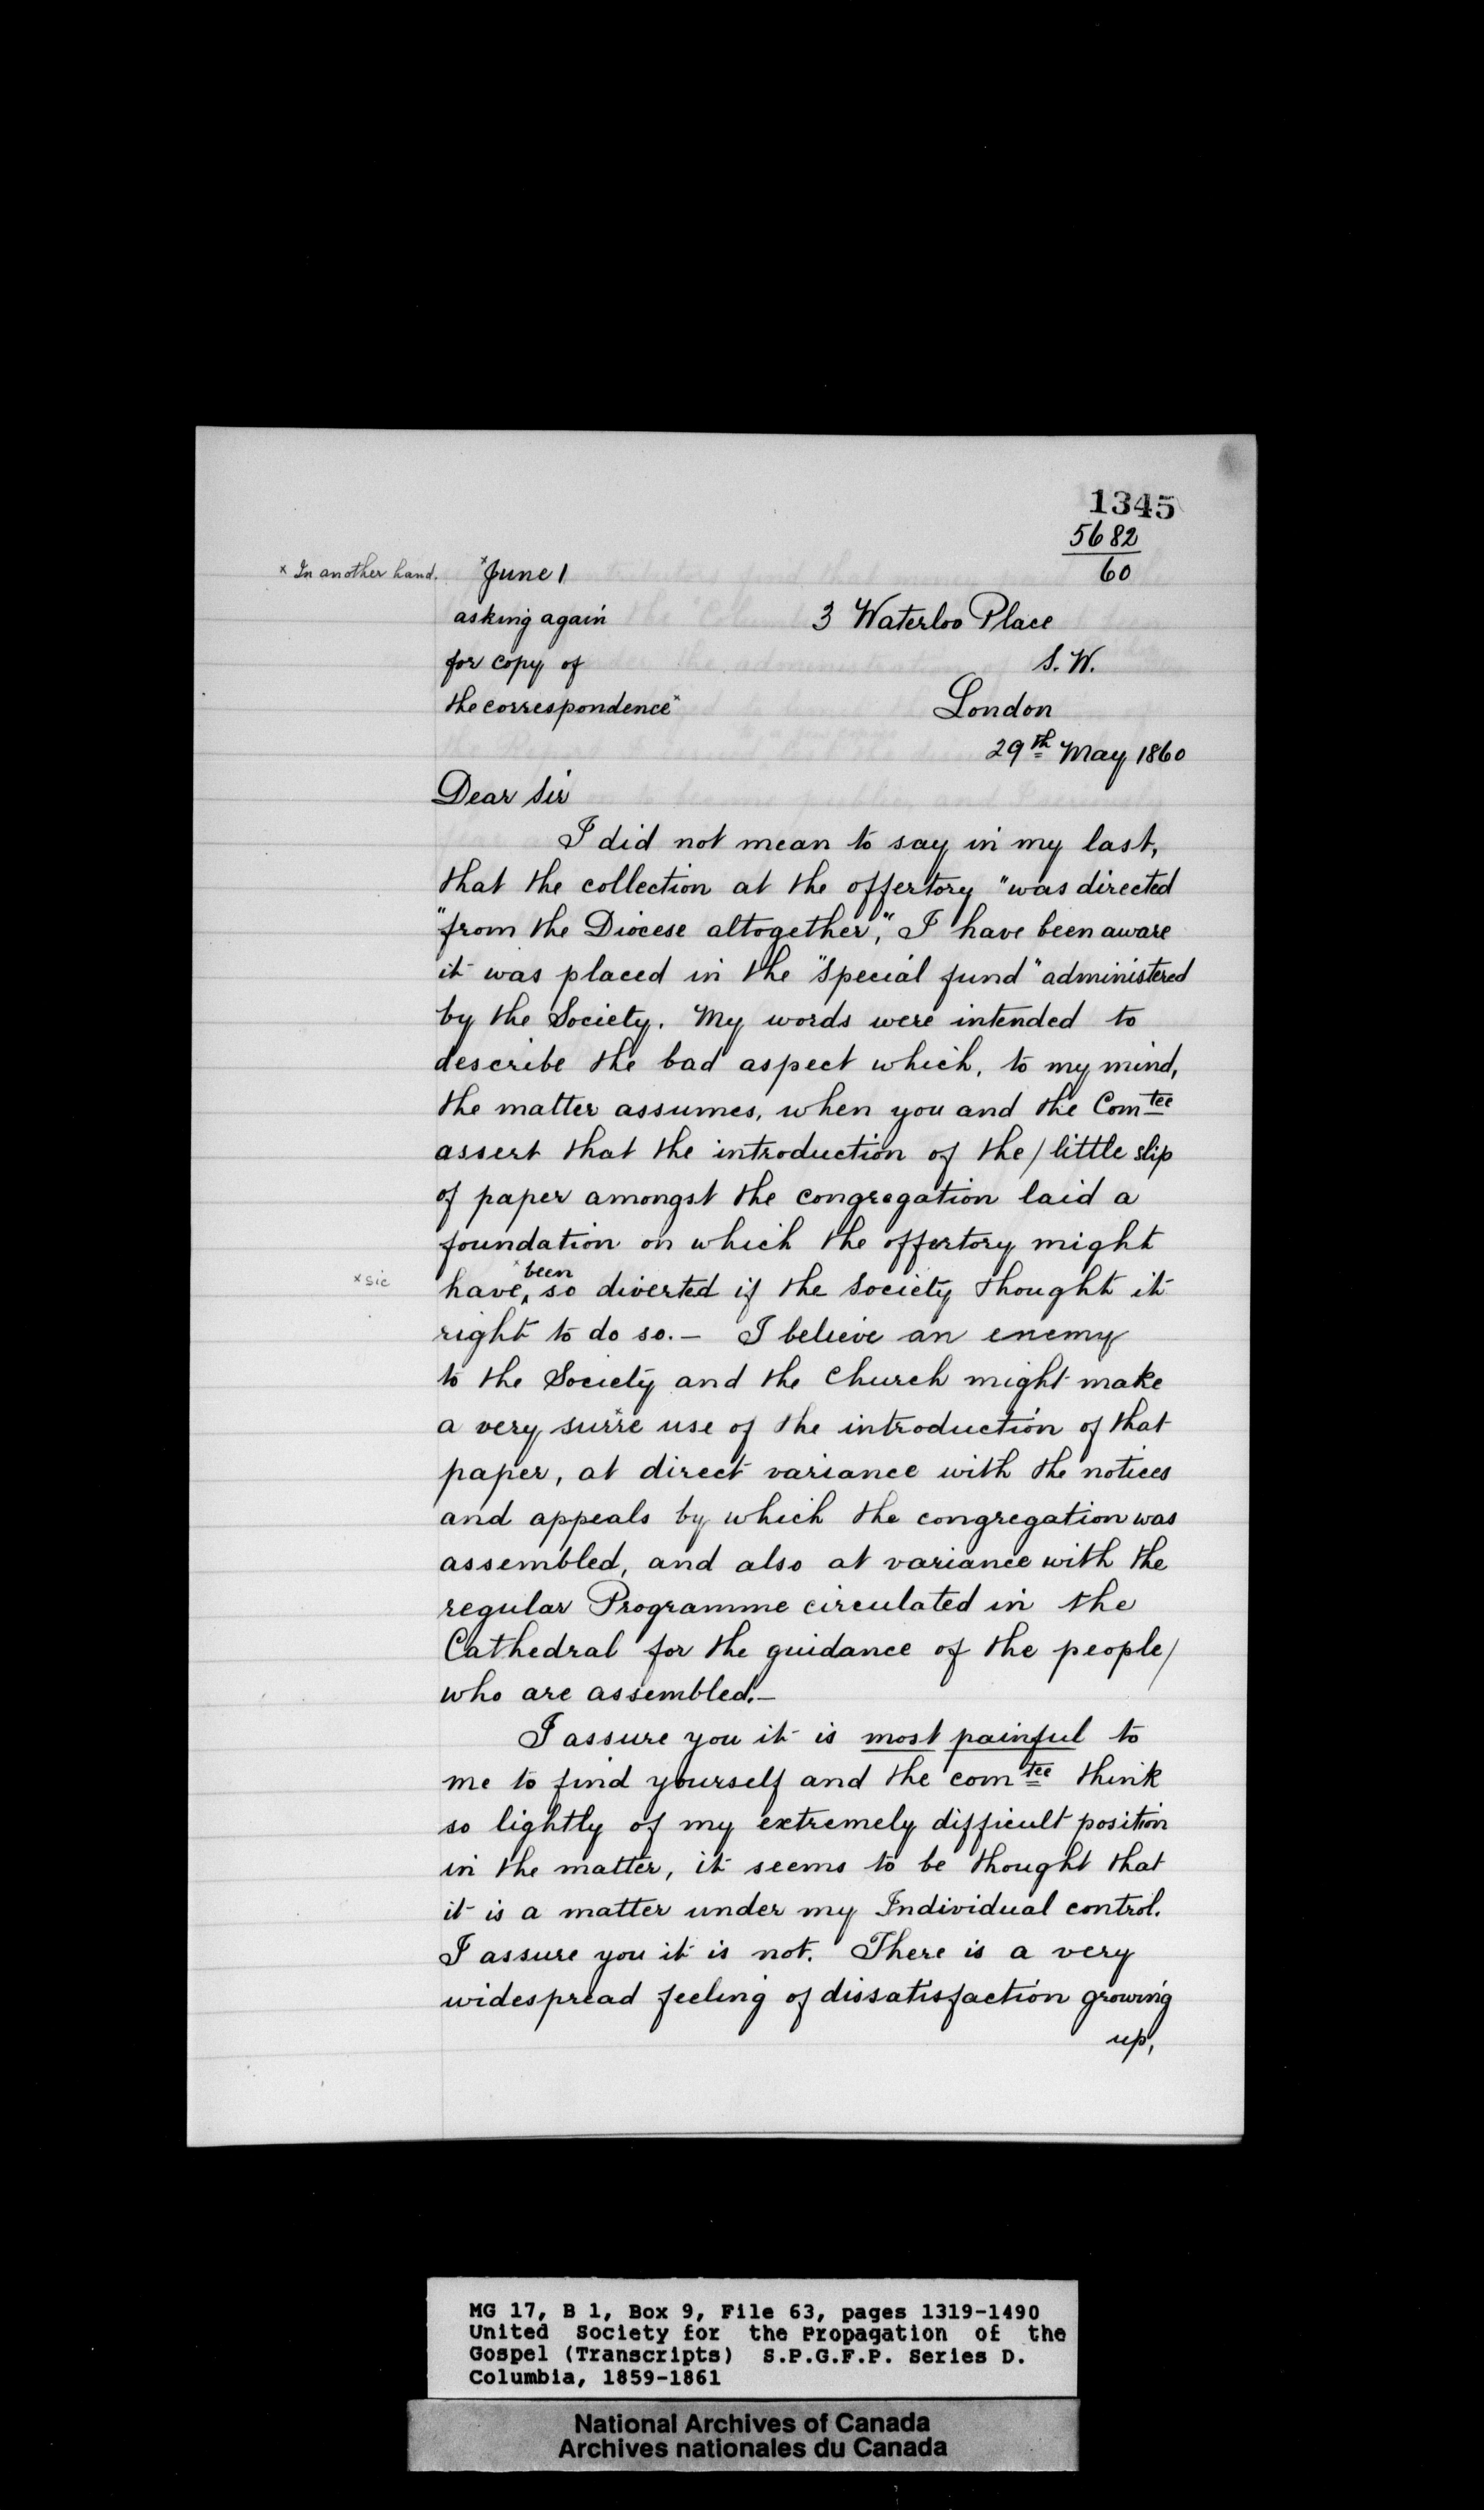 1345
5682
60
× In another hand.
×June 1
asking again
for copy of
the correspondence×
3 Waterloo Place
S. W.
London
29th May 1860
Dear Sir
I did not mean to say in my last,
that the collection at the offertory "was directed
"from the Diocese altogether," I have been aware
it was placed in the "special fund" administered
by the Society. My words were intended to
describe the bad aspect which, to my mind,
the matter assumes, when you and the Comtee
assert that the introduction of the/ little slip
of paper amongst the congregation laid a
foundation on which the offertory might
× sic
have, ×been so diverted if the Society thought it
right to do so.— I believe an enemy
to the Society and the Church might make
a very use of the introduction of that
paper, at direct variance with the notices
and appeals by which the congregation was
assembled, and also at variance with the
regular Programme circulated in the
Cathedral for the guidance of the people/
who are assembled.—
I assure you it is most painful to
me to find yourself and the comtee think
so lightly of my extremely difficult position
in the matter, it seems to be thought that
it is a matter under my Individual control.
I assure you it is not. There is a very
widespread feeling of dissatisfaction growing
up,
MG 17, B 1, Box 9, File 63, pages 1319-1490
United Society for the Propagation of the
Gospel (Transcripts) S.P.G.F.P. Series D.
Columbia, 1859-1861
National Archives of Canada
Archives nationales du Canada